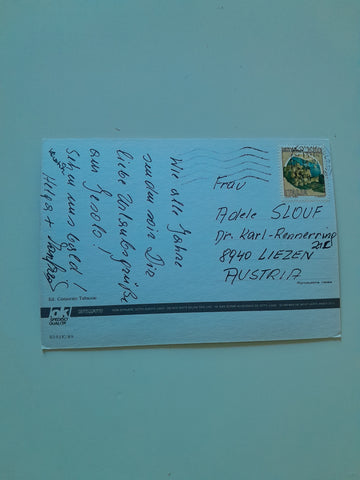 Wie alle Jahre
senden wir Dir
liebe Urlaubsgrüße
aus Grado!
Sehn uns bald!
Helga + Manfred
Frau
Adele SLOUF
Dr. Karl-Rennerring
21D
8940 LIEZEN
AUSTRIA
Ed. Consorzio Tabaccai
ak
SPEEDED
QUALITÄT